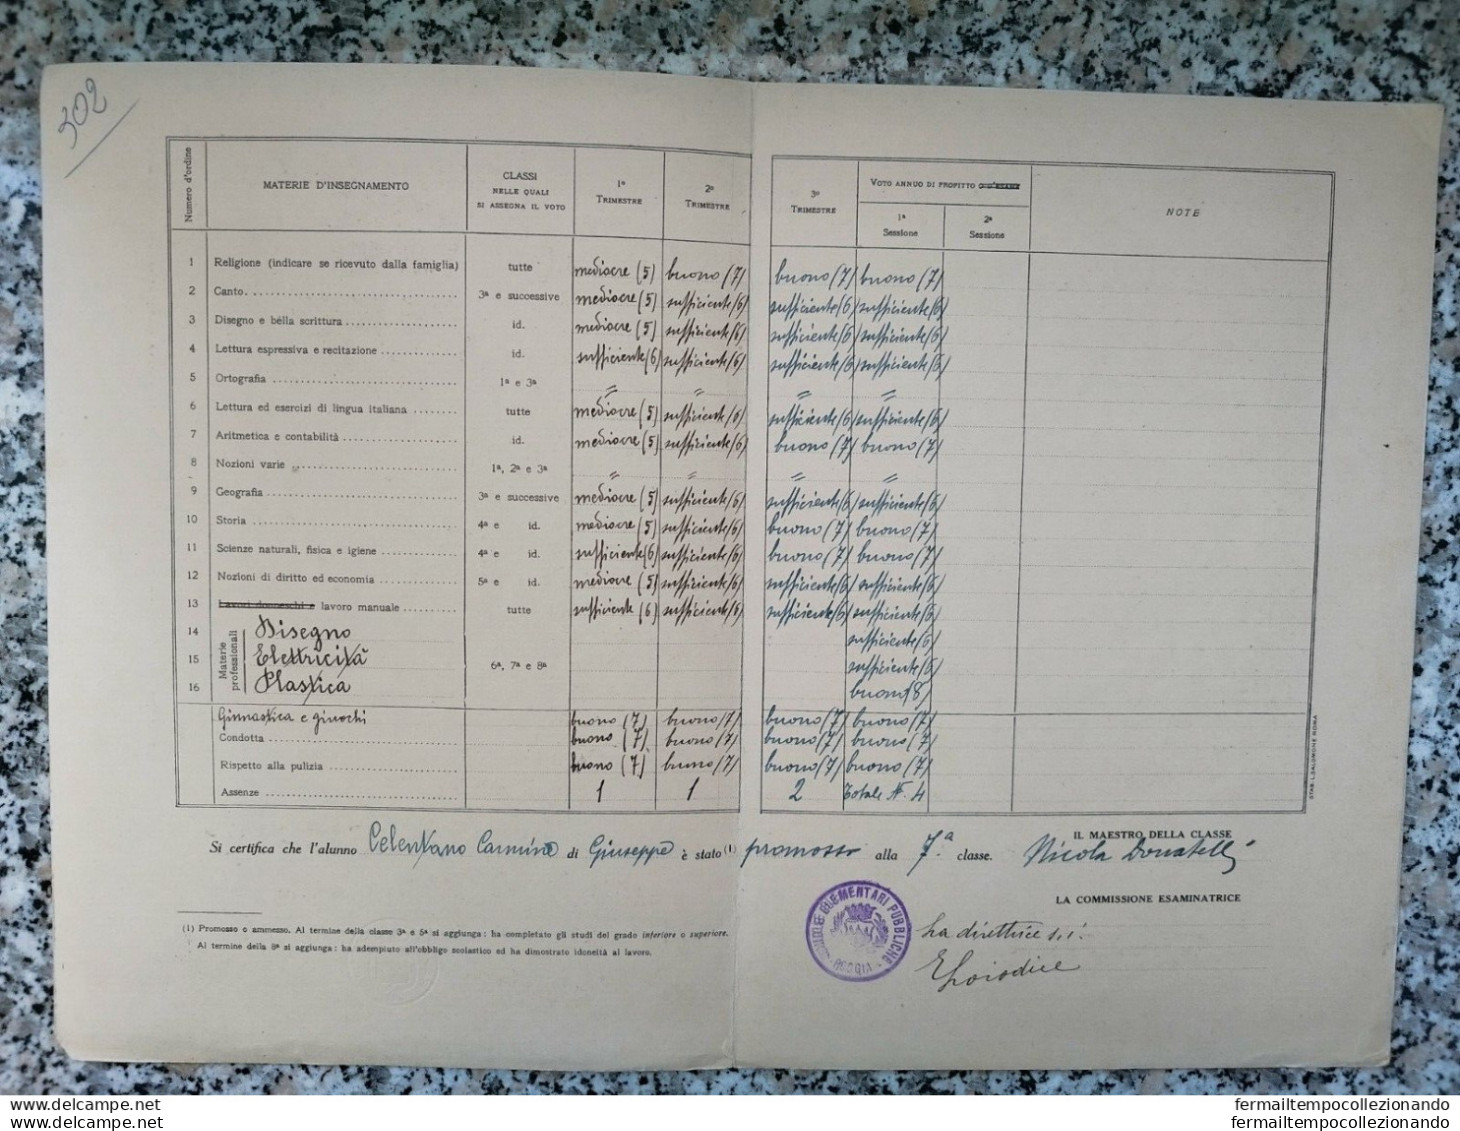 302
Numero d'ordine
MATERIE D'INSEGNAMENTO
CLASSI
NELLE QUALI
SI ASSEGNA IL VOTO
1º
TRIMESTRE
2º
TRIMESTRE
3º
TRIMESTRE
VOTO ANNUO DI PROFITTO
1ª
Sessione
2ª
Sessione
NOTE
1 Religione (indicare se ricevuto dalla famiglia) tutte mediocre (5) buono (7) buono (7) buono (7)
2 Canto 3ª e successive mediocre (5) sufficiente (6) sufficiente (6) sufficiente (6)
3 Disegno e bella scrittura id. mediocre (5) sufficiente (6) sufficiente (6) sufficiente (6)
4 Lettura espressiva e recitazione id. sufficiente (6) sufficiente (6) sufficiente (6) sufficiente (6)
5 Ortografia 1ª e 3ª = = = =
6 Lettura ed esercizi di lingua italiana tutte mediocre (5) sufficiente (6) sufficiente (6) sufficiente (6)
7 Aritmetica e contabilità id. mediocre (5) sufficiente (6) buono (7) buono (7)
8 Nozioni varie 1ª, 2ª e 3ª = = = =
9 Geografia 3ª e successive mediocre (5) sufficiente (6) sufficiente (6) sufficiente (6)
10 Storia 4ª e id. mediocre (5) sufficiente (6) buono (7) buono (7)
11 Scienze naturali, fisica e igiene 4ª e id. sufficiente (6) sufficiente (6) buono (7) buono (7)
12 Nozioni di diritto ed economia 5ª e id. mediocre (5) sufficiente (6) sufficiente (6) sufficiente (6)
13 Lavori donneschi e lavoro manuale tutte sufficiente (6) sufficiente (6) sufficiente (6) sufficiente (6)
Materie professionali
14 Disegno sufficiente (6)
15 Elettricità 6ª, 7ª e 8ª sufficiente (6)
16 Plastica buono (8)
Ginnastica e giuochi buono (7) buono (7) buono (7) buono (7)
Condotta buono (7) buono (7) buono (7) buono (7)
Rispetto alla pulizia buono (7) buono (7) buono (7) buono (7)
Assenze 1 1 2 Totale N. 4
STAB. L. SALOMONE ROMA
Si certifica che l'alunno Celentano Carmine di Giuseppe è stato (1) promosso alla 7.ª classe.
IL MAESTRO DELLA CLASSE
Nicola Donatelli
LA COMMISSIONE ESAMINATRICE
La direttrice
E Loiodice
ELEMENTARI PUBBLICHE
FOGGIA
(1) Promosso o ammesso. Al termine della classe 3ª e 5ª si aggiunga: ha completato gli studi del grado inferiore o superiore.
Al termine della 8ª si aggiunga: ha adempiuto all'obbligo scolastico ed ha dimostrato idoneità al lavoro.
fermailtempocollezionando
fermailtempocollezionando
fermailtempocollezionando
fermailtempocollezionando